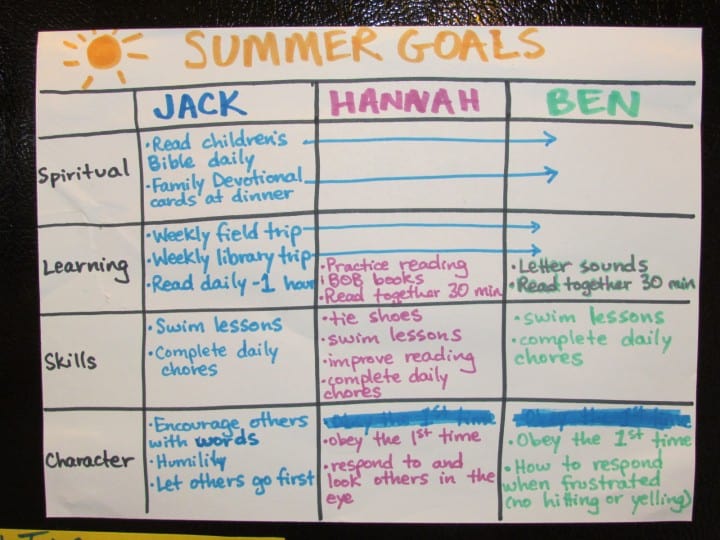 SUMMER GOALS
JACK HANNAH BEN
Spiritual
•Read children's
Bible daily
•Family Devotional
cards at dinner
Learning
•Weekly field trip
•Weekly library trip
•Read daily -1 hour
•Practice reading
BOB books
•Read together 30 min
•Letter sounds
•Read together 30 min
Skills
•Swim lessons
•Complete daily
chores
•tie shoes
•swim lessons
•improve reading
•complete daily
chores
•swim lessons
•complete daily
chores
Character
•Encourage others
with words
•Humility
•Let others go first
•Obey the 1st time
•obey the 1st time
•respond to and
look others in the
eye
•Obey the 1st time
•Obey the 1st time
•How to respond
when frustrated
(no hitting or yelling)